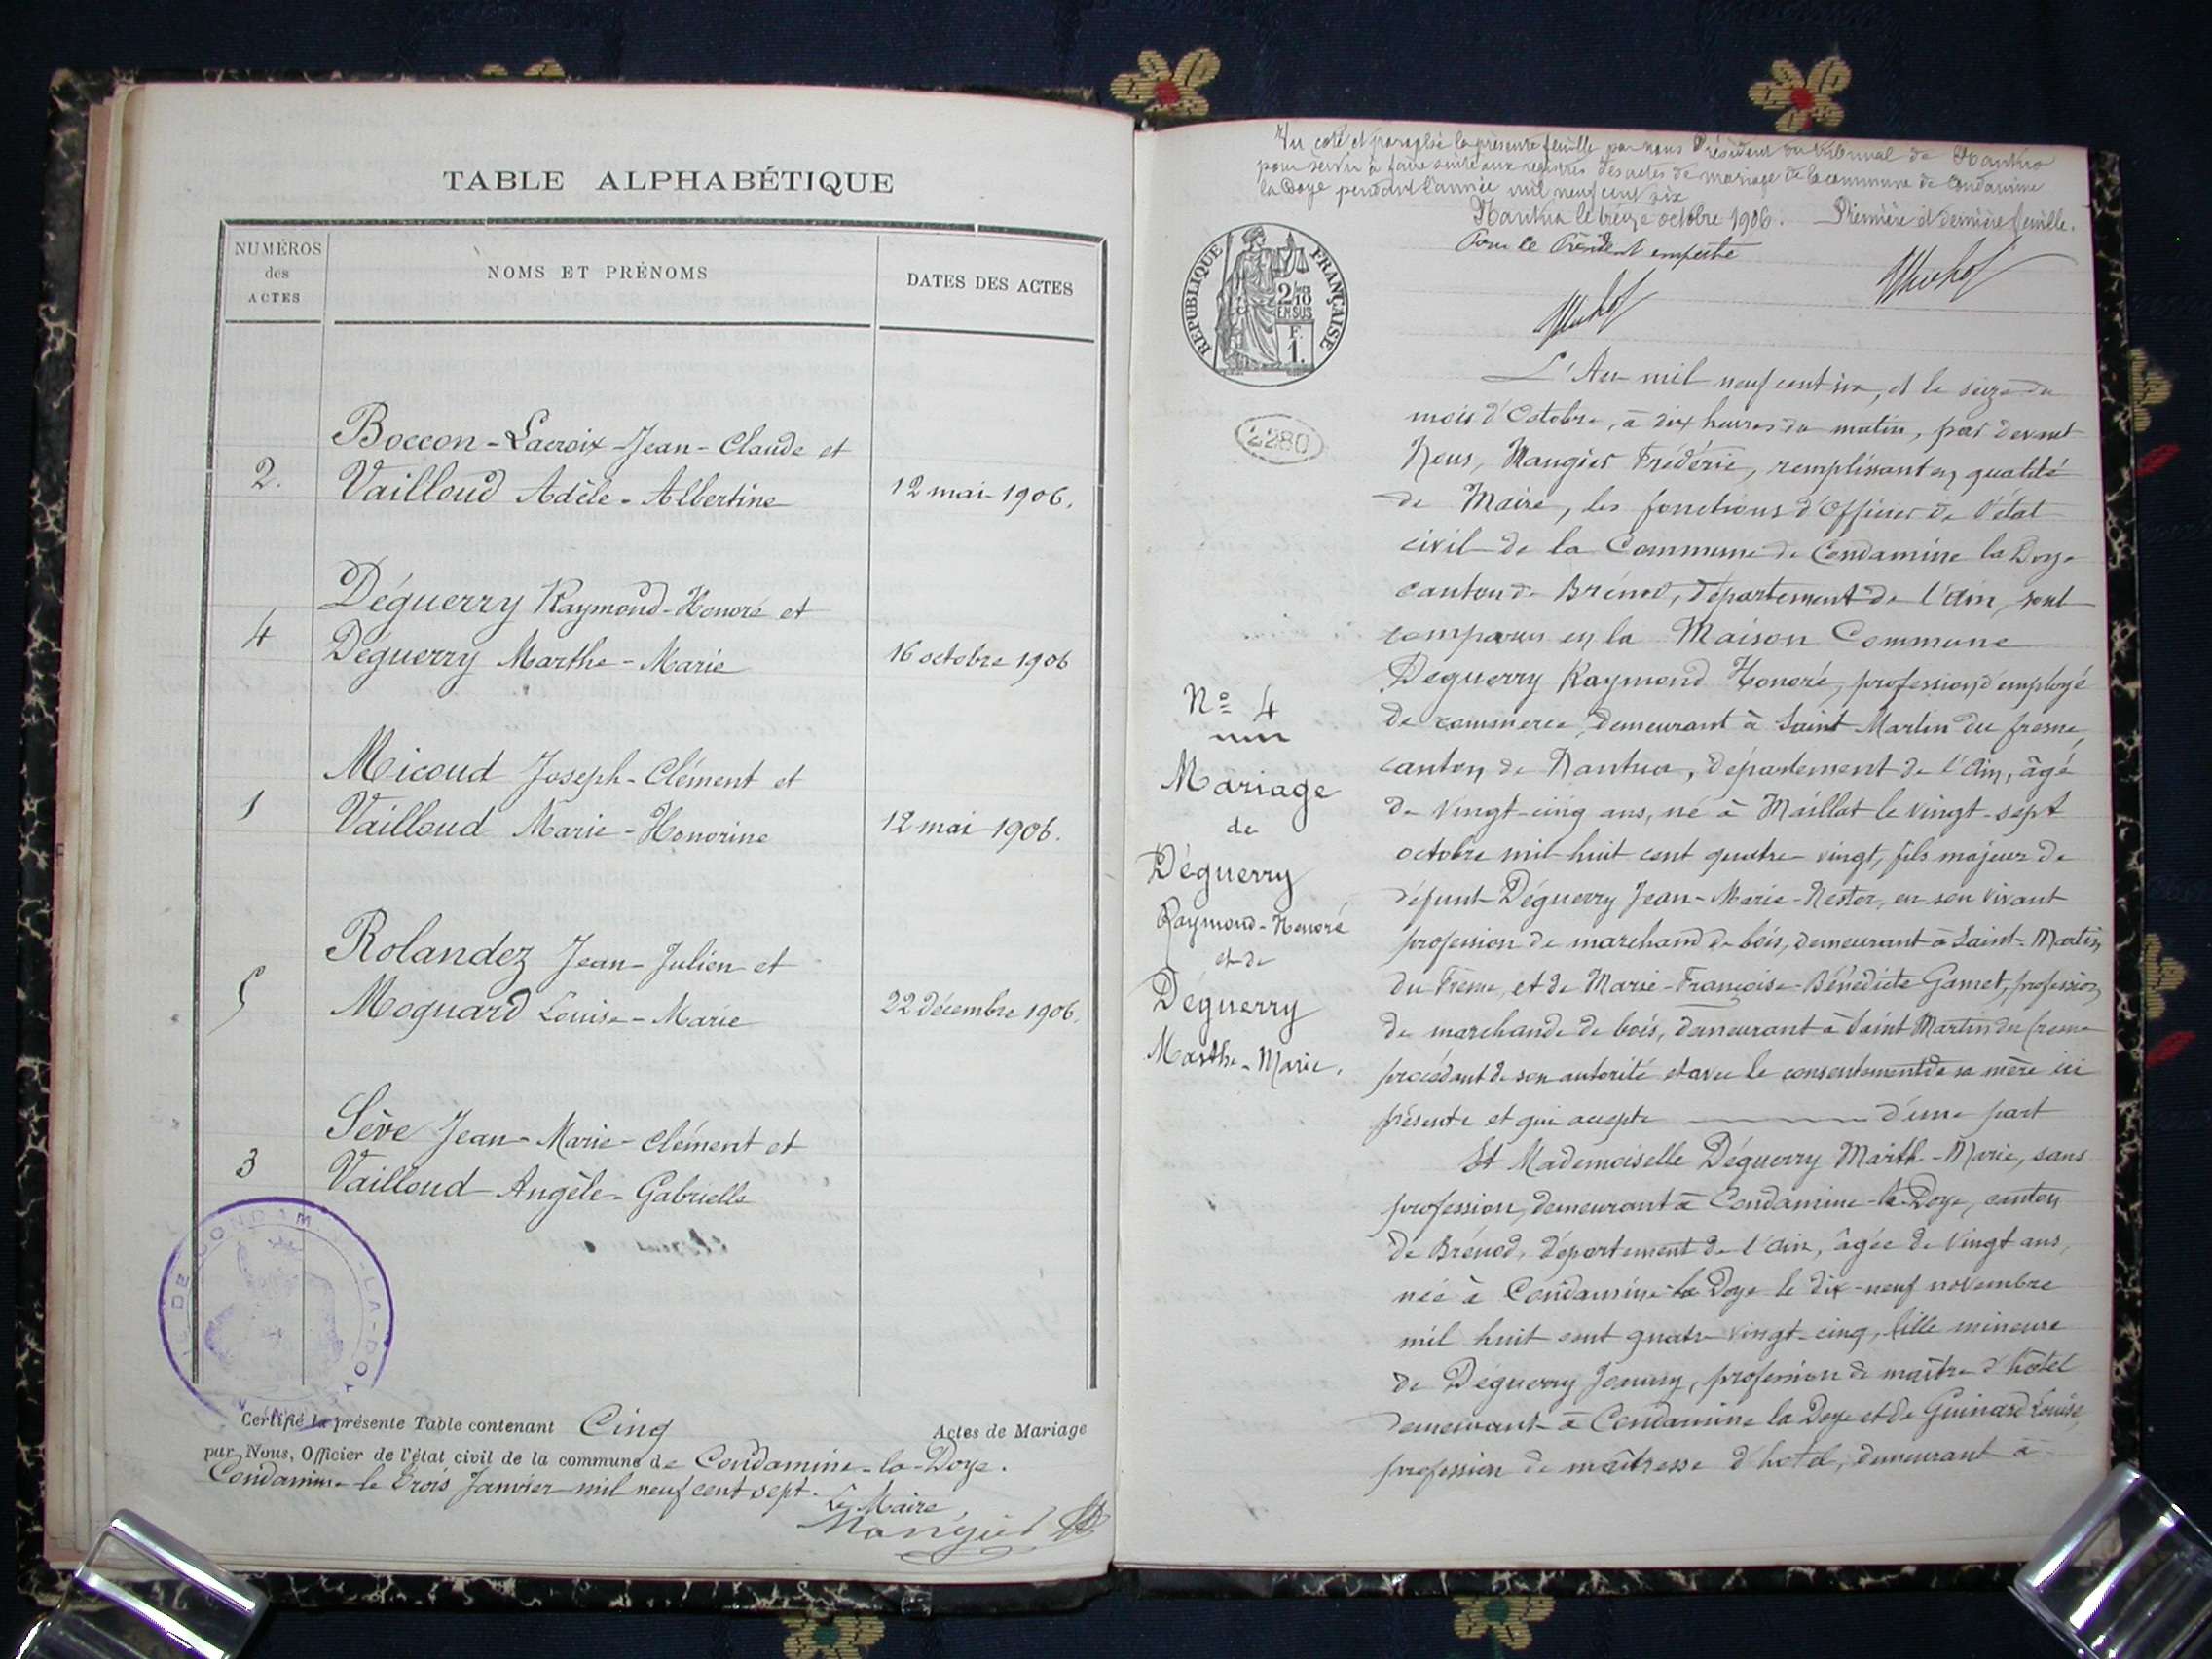 TABLE ALPHABÉTIQUE
NUMÉROS
des
ACTES
NOMS ET PRÉNOMS
DATES DES ACTES
Boccon-Lacroix Jean-Claude et
2. Vailloud Adèle-Albertine 12 mai 1906.
Déguerry Raymond-Honoré et
4 Déguerry Marthe-Marie 16 octobre 1906
Micoud Joseph-Clément et
1 Vailloud Marie-Honorine 12 mai 1906.
Rolandez Jean-Julien et
5 Moguard Louise-Marie 22 décembre 1906.
Sève Jean-Marie-Clément et
3 Vailloud Angèle-Gabrielle
DE CONDAM LA-DOY
Certifié la présente Table contenant Cinq Actes de Mariage
par Nous, Officier de l'état civil de la commune de Condamine-la-Doye.
Condamine le trois Janvier mil neuf cent sept.
Le Maire
Mangier
Vu coté et paraphé la présente feuille par nous Président du tribunal de Nantua
pour servir à faire suite aux registres des actes de mariage de la commune de Condamine
la Doye pendant l'année mil neuf cent six
Nantua le treize octobre 1906. Première et dernière feuille.
Pour le Président empêché
RÉPUBLIQUE FRANÇAISE
2/10
EN SUS
F.
1.
2280
L'An mil neuf cent six, et le seize du
mois d'Octobre, à dix heures du matin, par devant
Nous, Mangier Frédéric, remplissant en qualité
de Maire, les fonctions d'Officier de l'état
civil de la Commune de Condamine la Doye
canton de Brénod, département de l'Ain, sont
comparus en la Maison Commune
Déguerry Raymond Honoré, profession d'employé
de commerce, demeurant à Saint Martin du fresne,
canton de Nantua, département de l'Ain, âgé
de vingt-cinq ans, né à Maillat le vingt-sept
octobre mil huit cent quatre vingt, fils majeur de
défunt Déguerry Jean-Marie-Nestor, en son vivant
profession de marchand de bois, demeurant à Saint-Martin
du Frêne, et de Marie-Françoise-Bénédicte Gamet, profession
de marchande de bois, demeurant à Saint Martin du fresne
procédant de son autorité et avec le consentement de sa mère ici
présente et qui accepte d'une part
Et Mademoiselle Déguerry Marthe-Marie, sans
profession, demeurant à Condamine-la-Doye, canton
de Brénod, département de l'Ain, âgée de vingt ans,
née à Condamine-la Doye le dix-neuf novembre
mil huit cent quatre vingt-cinq, fille mineure
de Déguerry profession de maître d'hôtel
demeurant à Condamine la Doye et de Guinard Louise,
profession de maîtresse d'hotel, demeurant à
Nº 4
Mariage
de
Déguerry
Raymond-Honoré
et de
Déguerry
Marthe-Marie.